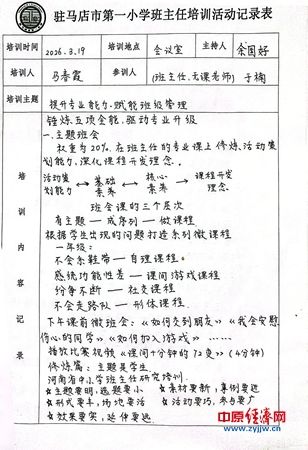 驻马店市第一小学班主任培训活动记录表
培训时间 2026.3.19 培训地点 会议室 主持人 余国好
培训人 马春霞 参训人 (班主任、主课老师) 于楠
培训主题
提升专业能力,赋能班级管理
培训内容记录
锤炼五项全能,驱动专业升级
一.主题班会
权重占20%,在班主任的专业课上修炼、活动策
划能力,深化课程开发理念。
活动策划能力 ←→ 基础素养 ←→ 核心素养 ←→ 课程开发理念
班会课的三个层次
有主题—成序列—微课程
根据学生出现的问题打造系列微课程
一年级:
不会系鞋带—自理课程
感统功能性差—课间游戏课程
纷争不断—社交课程
不会走路队—形体课程
下午课前微班会:《如何交到朋友》《我会安慰
伤心的同学》《如何加入游戏》……
播放比赛视频《课间十分钟的72变》(4分钟)
修炼篇:主题是学生
河南省中小学班主任研究培训
☆主题要明,选题要小 ☆素材要新,事例要近
☆形式要丰,场地要活 ☆活动要巧,参与要广
☆效果要实,延伸要远
中原经济网
www.zyjjw.cn